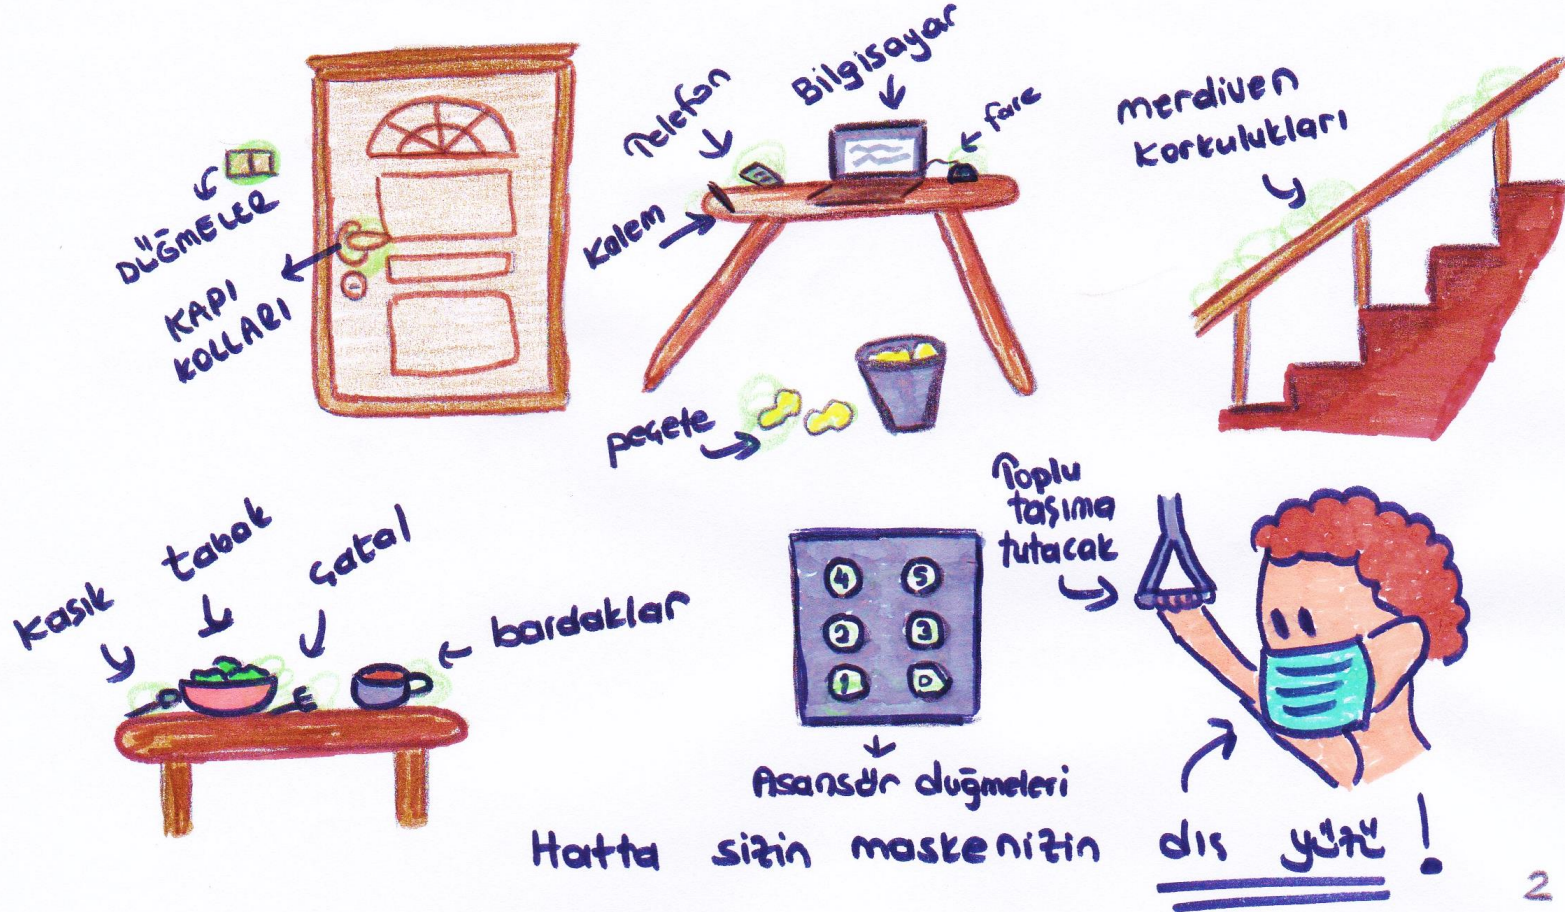 DÜĞMELER
KAPI
KOLLARI
Telefon
Bilgisayar
fare
Kalem
peçete
merdiven
korkulukları
kaşık
tabak
çatal
bardaklar
4 5
2 3
1 D
Asansör duğmeleri
Toplu
taşıma
tutacak
Hatta sizin maskenizin dış yüzü!
2